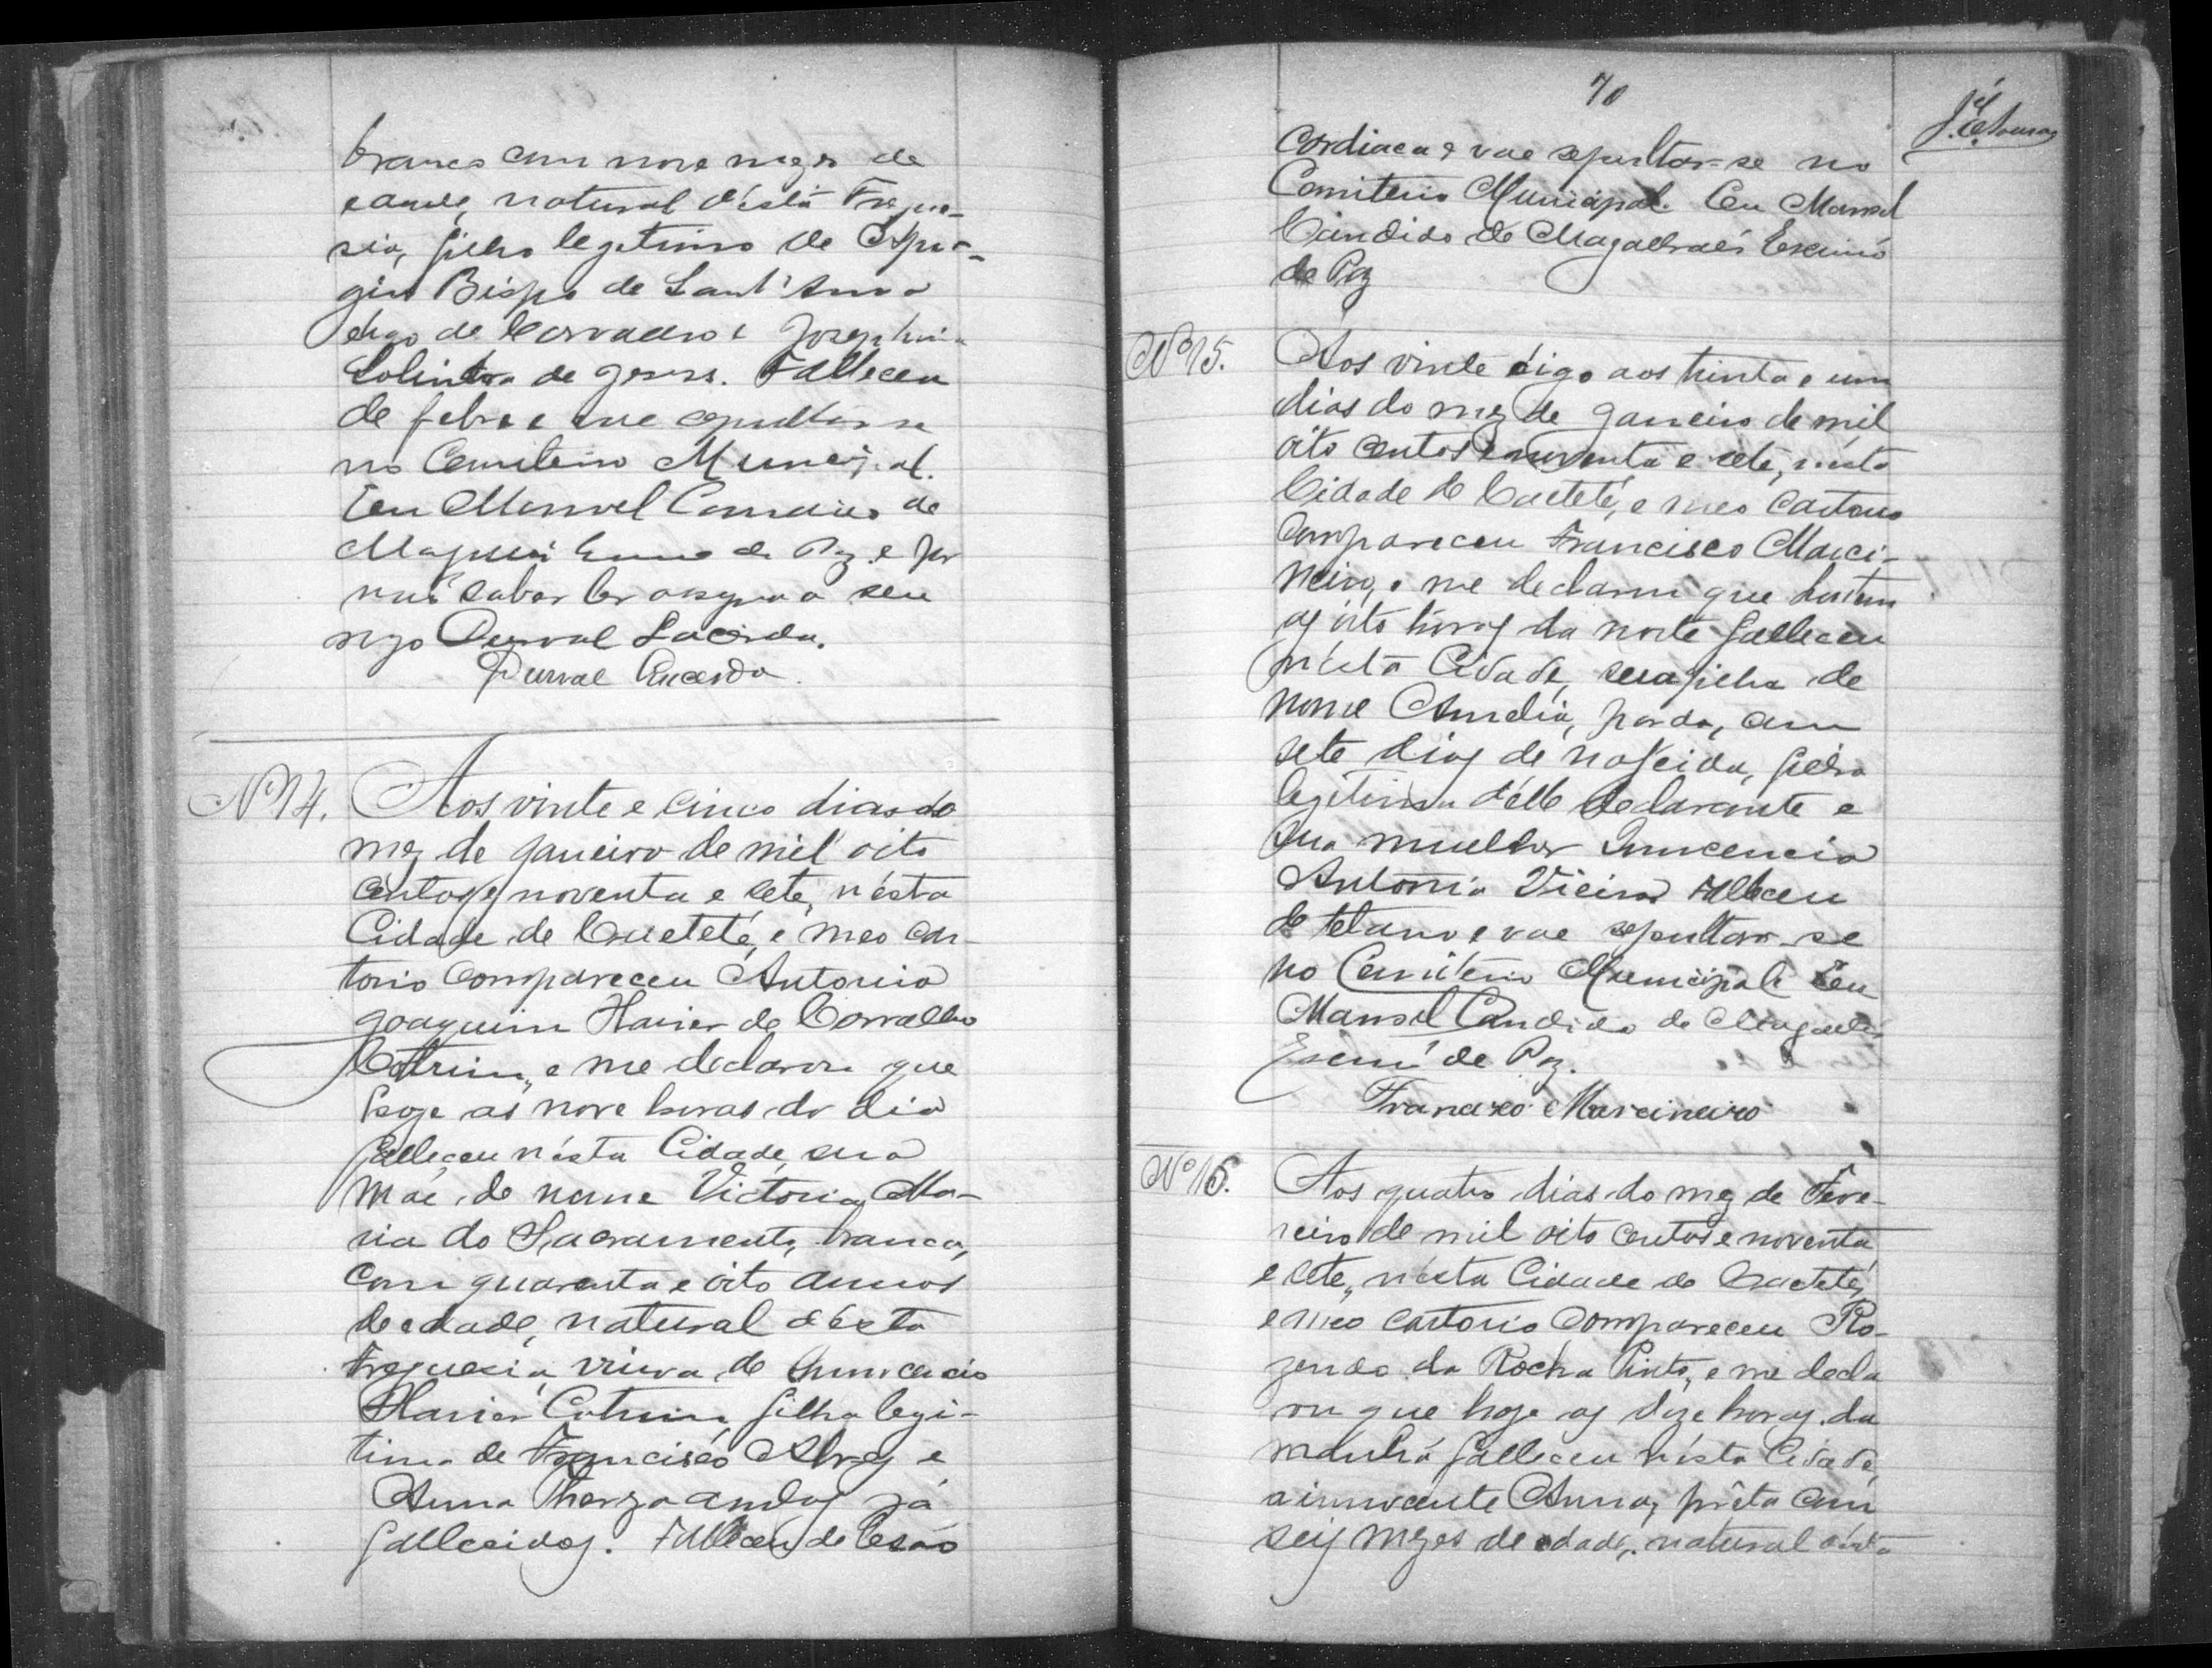 branco com nove mezes de
edade, natural désta Fregue-
sia, filho legitimo de
gino Bispo de Sant'Anna
digo de Carvalho e Josephina
de Jesus. Falleceu
de febre e vae sepultar-se
no Cemiterio Municipal.
Eu Manoel Candido de
de Paz e por
não saber ler assigna a seu
rogo Durval Lacerda.
Durval Lacerda.
Nº 14. Aos vinte e cinco dias do
mez de Janeiro de mil oito
centos e noventa e sete, n'ésta
Cidade de Caeteté, e meo car-
torio compareceu Antonio
Joaquim Xavier de Carvalho
Cotrim, e me declarou que
hoje as nove horas do dia
falleceu n'ésta Cidade sua
mãe de nome Victoria Ma-
ria do Sacramento, branca,
com quarenta e oito annos
de edade, natural d'ésta
Freguesia, viuva de Innocencio
Xavier Cotrim, filha legi-
tima de Francisco Alves e
Anna Thereza ambos já
fallecidos. Falleceu de lesão
70
cardiaca e vae sepultar-se no
Cemiterio Municipal. Eu Manoel
Candido de Magalhaes Escrivão
de Paz
Nº 15. Aos vinte digo aos trinta e um
dias do mez de Janeiro de mil
oito centos e noventa e sete, n'esta
Cidade de Caeteté, e meo cartorio
compareceu Francisco Marci-
neiro, e me declarou que hontem
as oito horas da noite falleceu
n'ésta Cidade, sua filha de
nome Amelia, parda, com
sete dias de nascida, filha
legitima d'élle declarante e
sua mulher Innocencia
Antonia Vieira Falleceu
de tetano e vae sepultar-se
no Cemiterio Municipal. Eu
Manoel Candido de Magalhães
Escrivão de Paz.
Francisco Marcineiro
Nº 16. Aos quatro dias do mez de Feve-
reiro de mil oito centos e noventa
e sete, n'ésta Cidade de Caeteté,
e meo cartorio compareceu Ro-
zendo da Rocha Pinto, e me decla
rou que hoje as doze horas da
manhã falleceu n'ésta Cidade,
a innocente Anna, prêta com
seis mezes de edade, natural désta